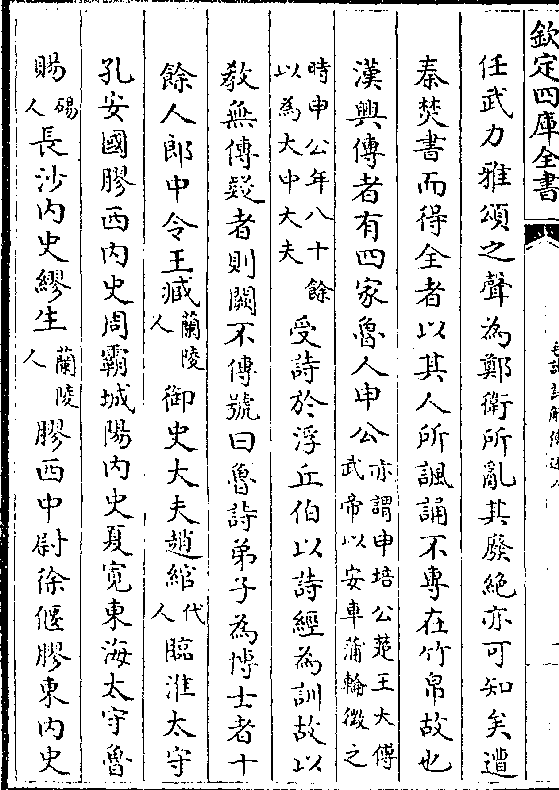 欽定四庫全書
任武力雅頌之聲為鄭衛所亂其廢絶亦可知矣遭
秦焚書而得全者以其人所諷誦不專在竹帛故也
漢興傳者有四家魯人申公亦謂申培公楚王太傅武帝以安車蒲輪徵之
時申公年八十餘以為大中大夫受詩於浮丘伯以詩經為訓故以
教無傳疑者則闕不傳號曰魯詩弟子為博士者十
餘人郎中令王臧蘭陵人御史大夫趙綰代人臨淮太守
孔安國膠西内史周霸城陽内史夏寛東海太守魯
賜碭人長沙内史繆生蘭陵人膠西中尉徐偃膠東内史